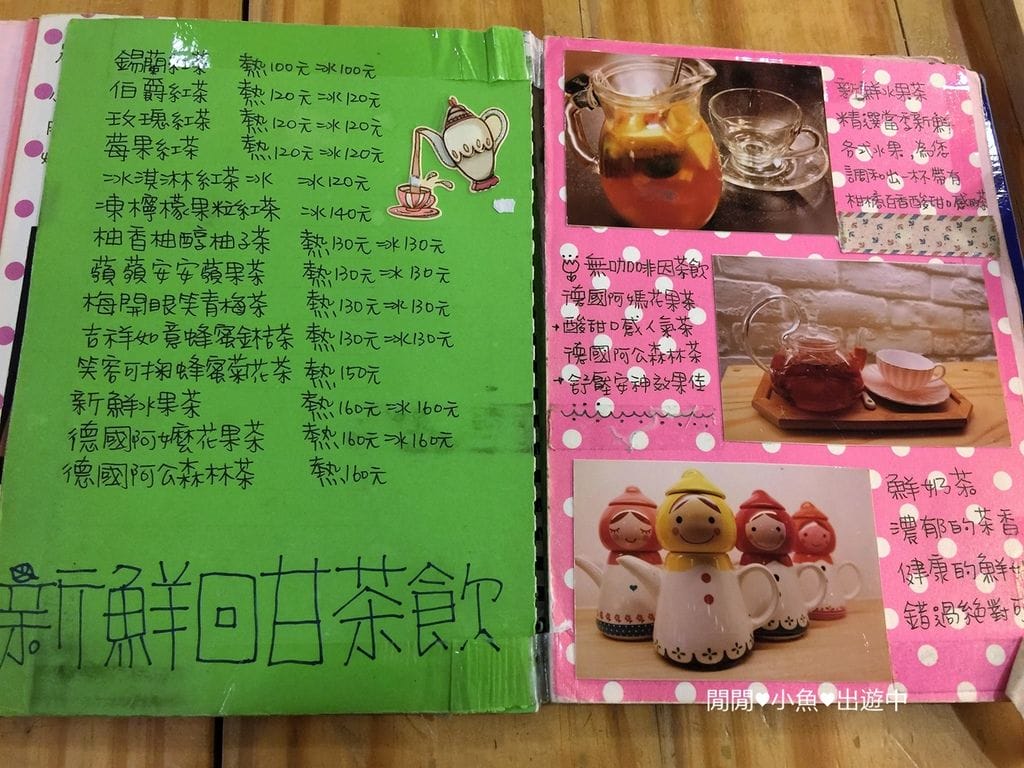 錫蘭紅茶 熱100元 冰100元
伯爵紅茶 熱120元 冰120元
玫瑰紅茶 熱120元 冰120元
莓果紅茶 熱120元 冰120元
冰淇淋紅茶冰 冰120元
凍檸檬果粒紅茶 冰140元
柚香柚醇柚子茶 熱130元 冰130元
蘋蘋安安蘋果茶 熱130元 冰130元
梅開眼笑青梅茶 熱130元 冰130元
吉祥如意蜂蜜金桔茶 熱130元 冰130元
笑容可掬蜂蜜菊花茶 熱150元
新鮮水果茶 熱160元 冰160元
德國阿嬤花果茶 熱160元 冰160元
德國阿公森林茶 熱160元
新鮮回甘茶飲
新鮮水果茶
精選當季新鮮
各式水果,為您
調和出一杯帶有
柑橘百香酸甜口感的茶
無咖啡因茶飲
德國阿嬤花果茶
→酸甜口感人氣茶
德國阿公森林茶
→舒壓安神效果佳
鮮奶茶
濃郁的茶香
健康的鮮奶
錯過絕對可
閒閒♥小魚♥出遊中